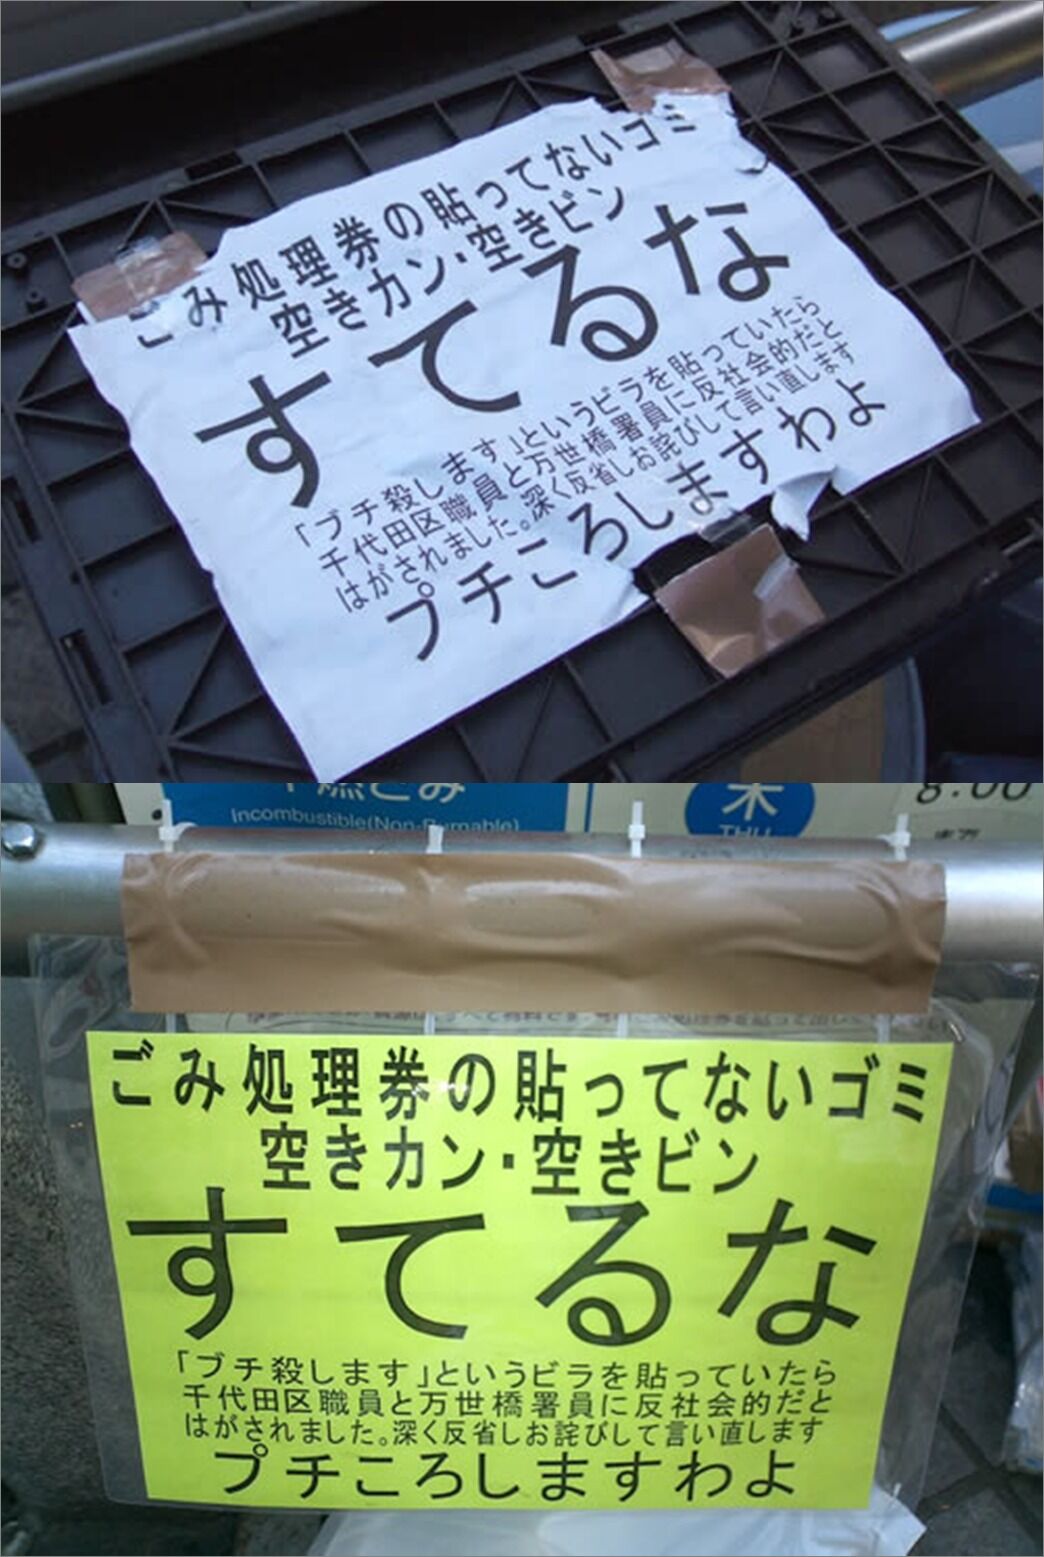 ごみ処理券の貼ってないゴミ
空きカン・空きビン
すてるな
「ブチ殺します」というビラを貼っていたら
千代田区職員と万世橋署員に反社会的だと
はがされました。深く反省しお詫びして言い直します
プチころしますわよ
Incombustible(Non-Burnable)
木
THU
8:00
ごみ処理券の貼ってないゴミ
空きカン・空きビン
すてるな
「ブチ殺します」というビラを貼っていたら
千代田区職員と万世橋署員に反社会的だと
はがされました。深く反省しお詫びして言い直します
プチころしますわよ